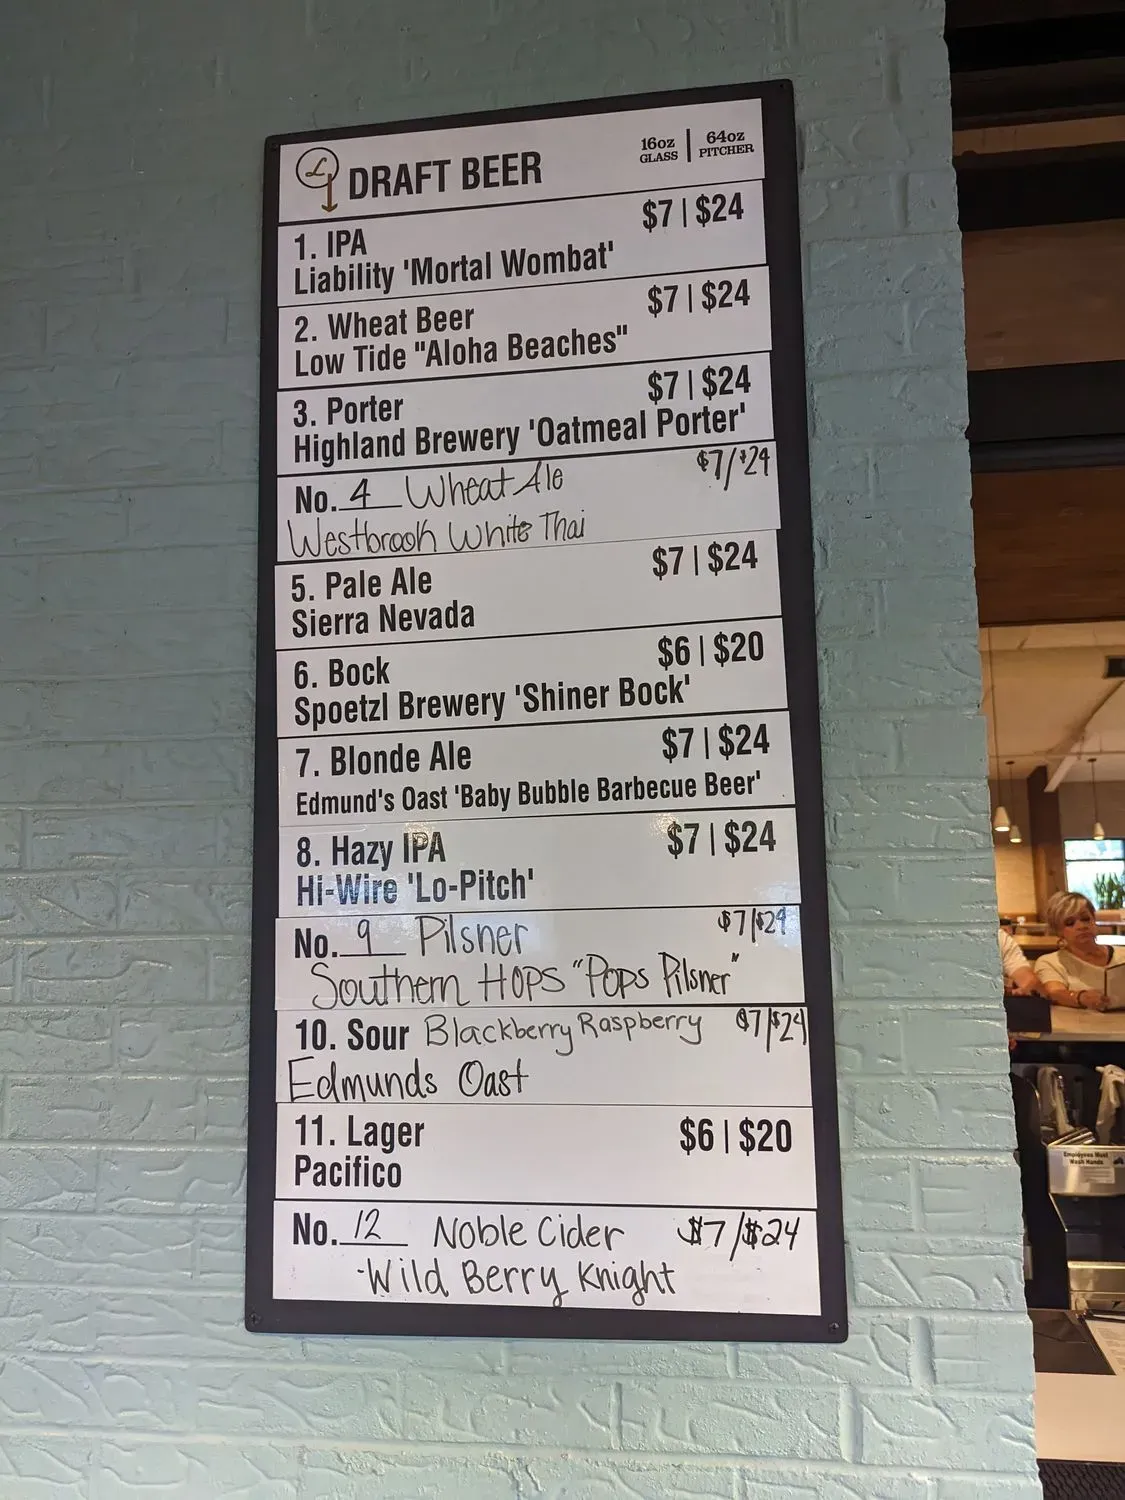 L DRAFT BEER
16oz GLASS | 64oz PITCHER
1. IPA $7 | $24
Liability 'Mortal Wombat'
2. Wheat Beer $7 | $24
Low Tide "Aloha Beaches"
3. Porter $7 | $24
Highland Brewery 'Oatmeal Porter'
No. 4 Wheat Ale $7/$24
Westbrook White Thai
5. Pale Ale $7 | $24
Sierra Nevada
6. Bock $6 | $20
Spoetzl Brewery 'Shiner Bock'
7. Blonde Ale $7 | $24
Edmund's Oast 'Baby Bubble Barbecue Beer'
8. Hazy IPA $7 | $24
Hi-Wire 'Lo-Pitch'
No. 9 Pilsner $7/$24
Southern HOPS "Pops Pilsner"
10. Sour Blackberry Raspberry $7/$24
Edmunds Oast
11. Lager $6 | $20
Pacifico
No. 12 Noble Cider $7/$24
-Wild Berry Knight
Employees Must
Wash Hands